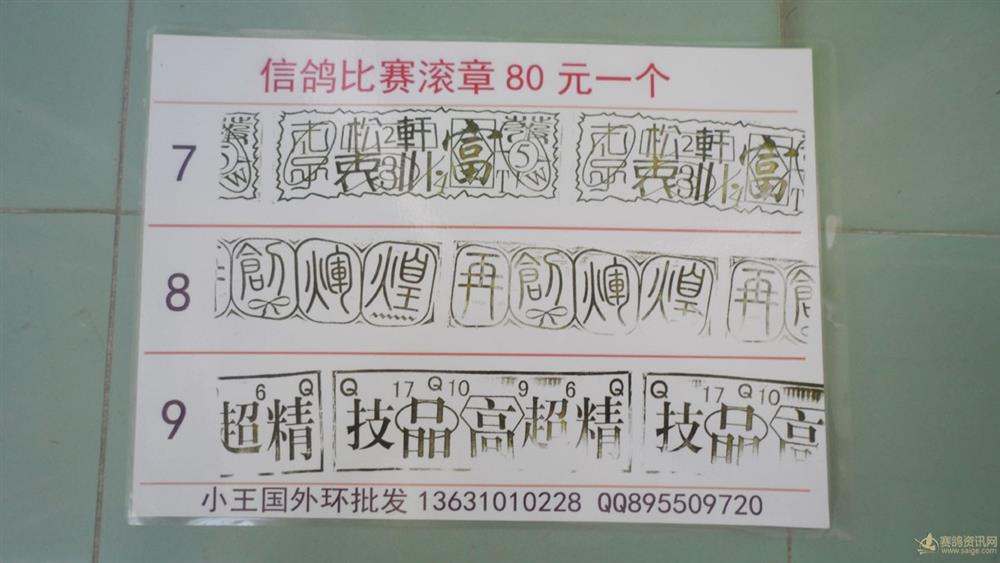 信鸽比赛滚章 80 元一个
7
松 2 軒 富 5
袁 3
松 2 軒 富
袁 3
8
創 輝 煌 再 創 輝 煌 再 創
9
6 Q Q 17 Q 10 9 6 Q Q 17 Q 10
超精 技品高超精 技品高
小王国外环批发 13631010228 QQ895509720
赛鸽资讯网
www.saige.com